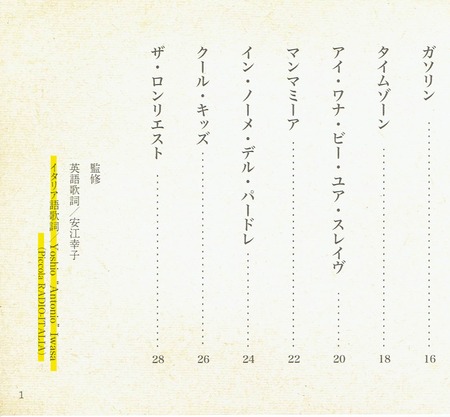 ガソリン…………………………16
タイムゾーン……………………18
アイ・ワナ・ビー・ユア・スレイヴ……20
マンマミーア……………………22
イン・ノーメ・デル・パードレ………24
クール・キッズ…………………26
ザ・ロンリエスト………………28
監修
英語歌詞／安江幸子
イタリア語歌詞／Yoshio "Antonio" Iwasa
(Piccola RADIO-ITALIA)
1